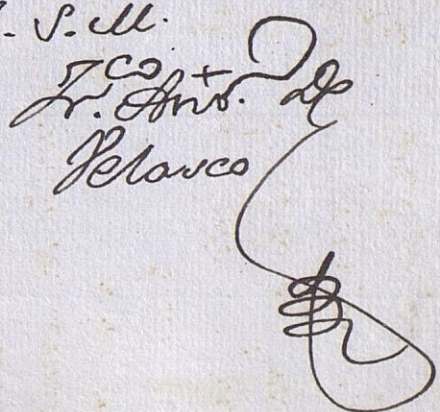 S. M.
Fr.co Ant.o de
Velasco